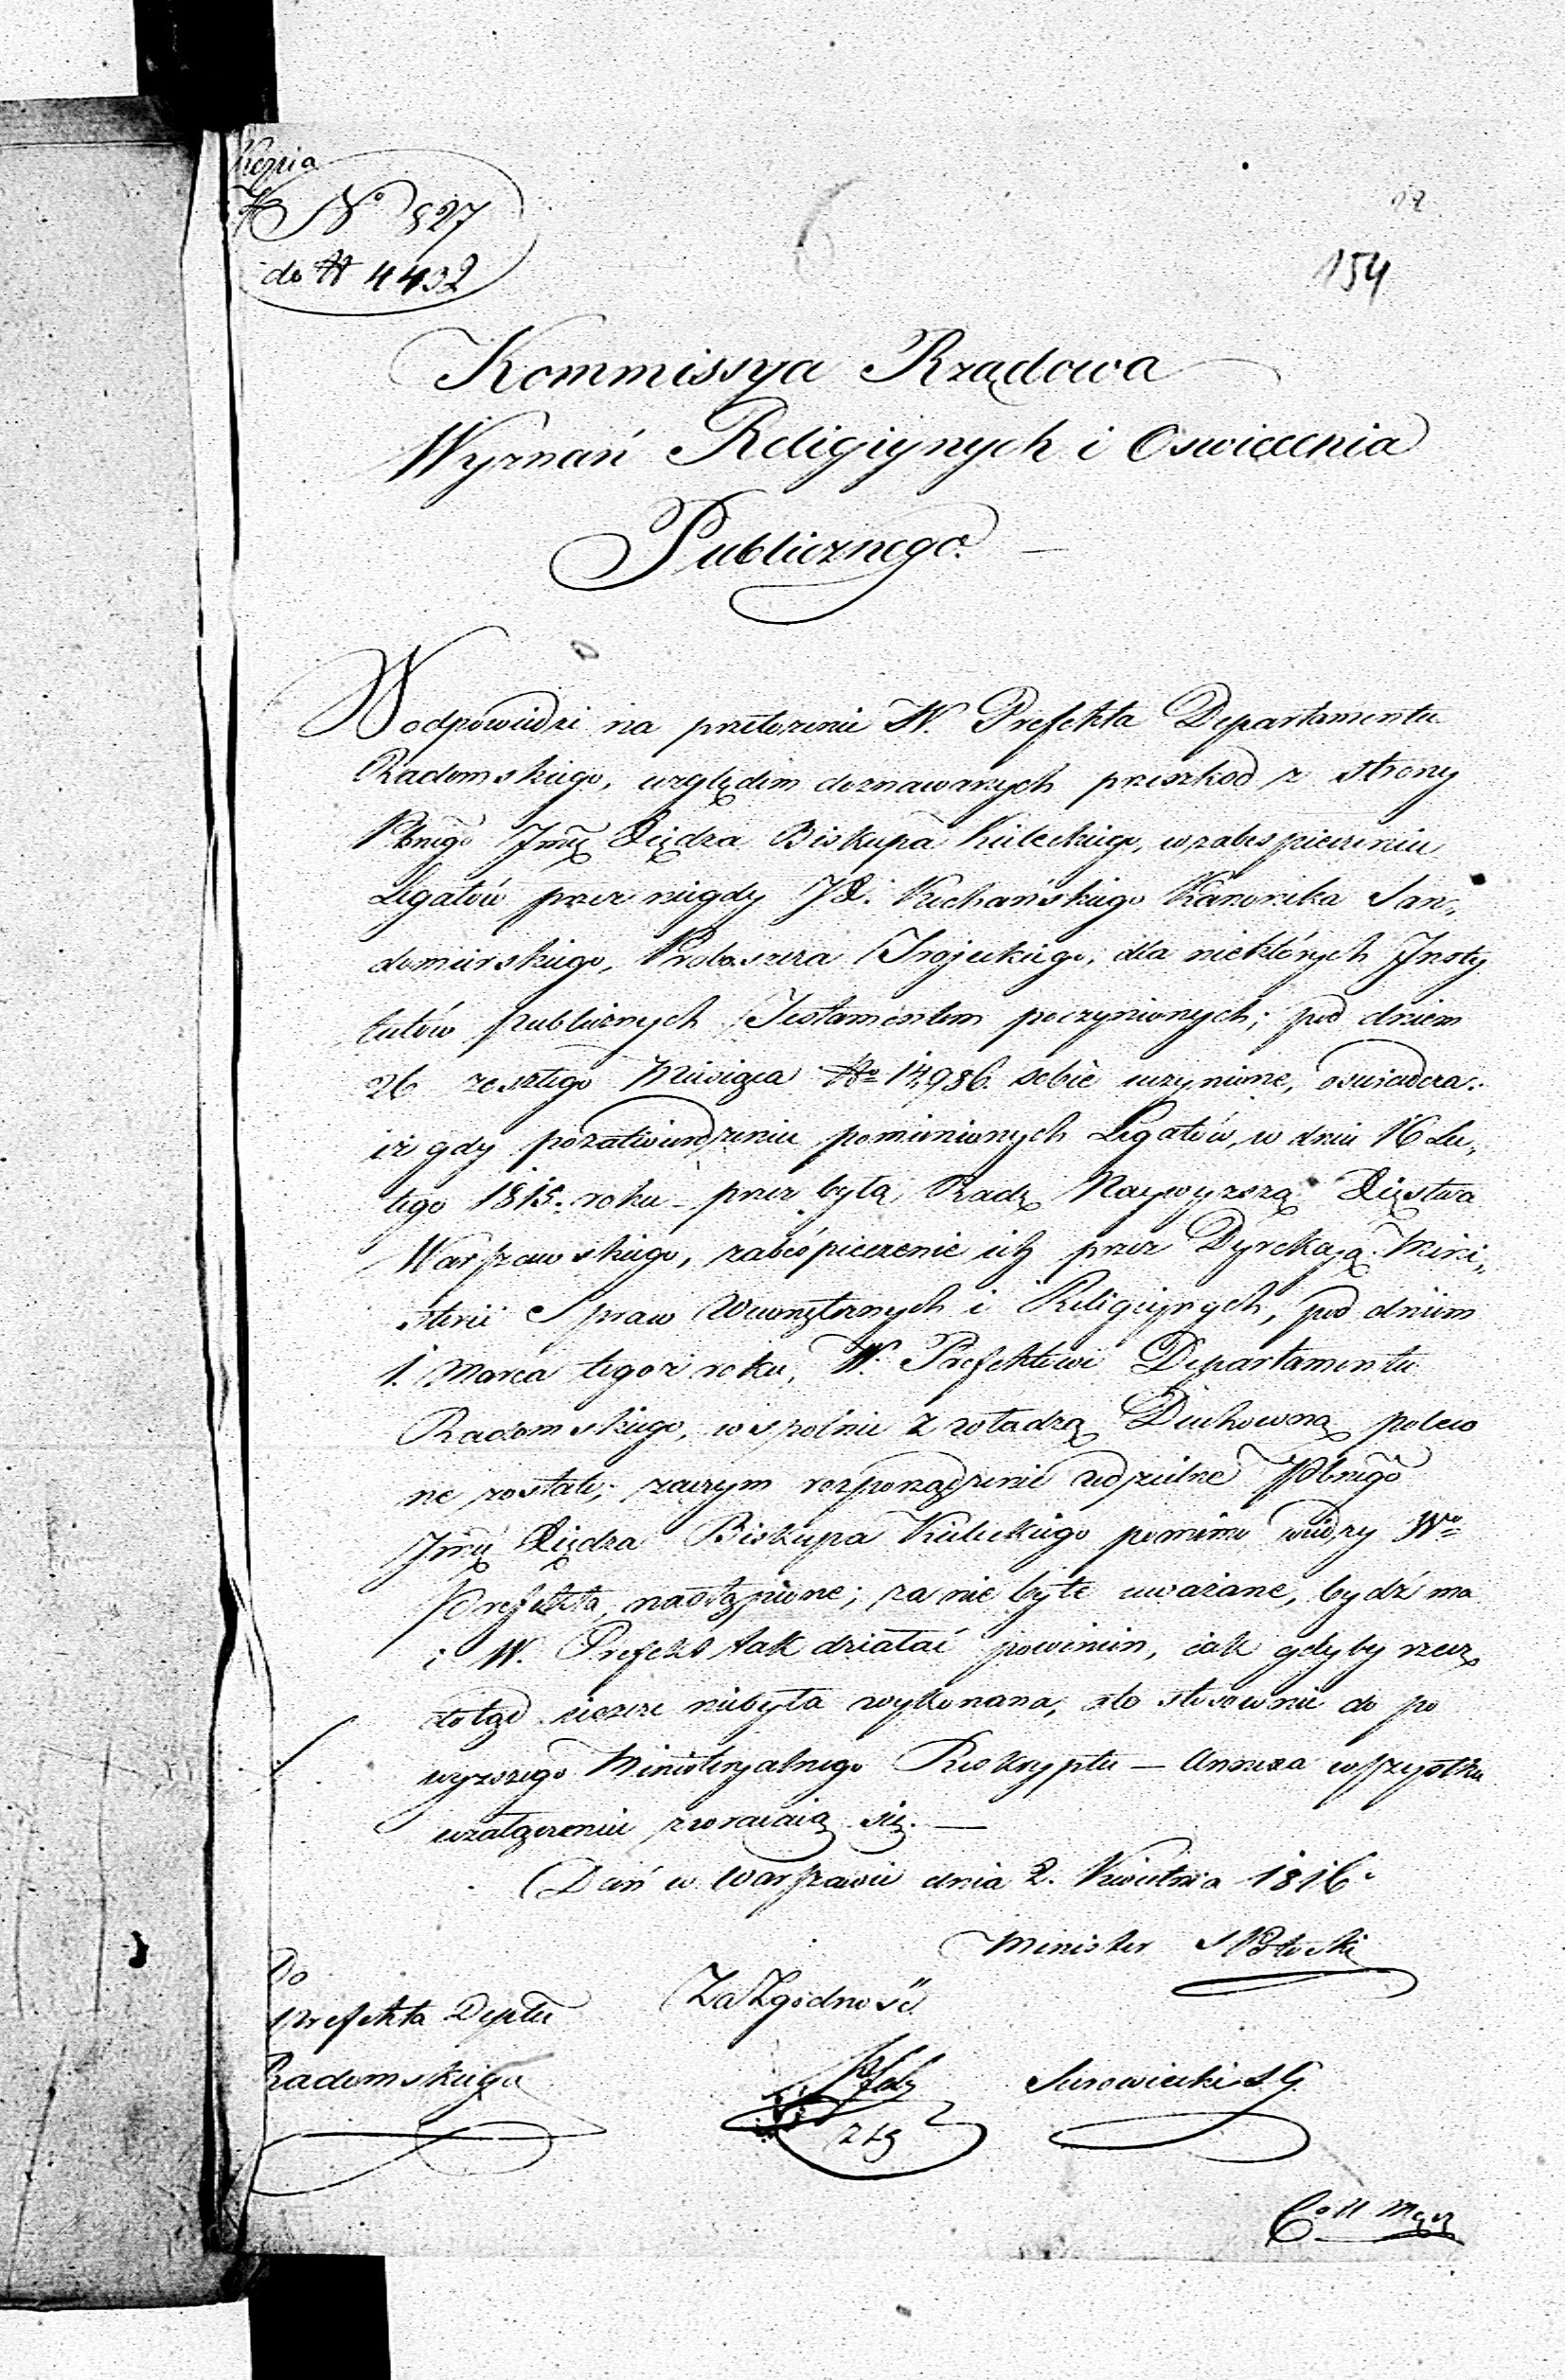 Kopia
No 827
do # 4432
154
Kommissya Rządowa
Wyznań Religiynych i Oswiecenia
Publicznego.
W odpowiedzi na przełożenie W. Prefekta Departamentu
Radomskiego, względem doznawanych przeszkod z strony
Jmę Xiędza Biskupa Kieleckiego, w zabespieczeniu
Legatów przez niegdy JX. Kochańskiego Kanonika San„
domirskiego, Proboszcza Trojeckiego, dla niektórych Insty
tutów publicznych Testamentem poczynionych; pod dniem
26 zeszłego Miesiąca No 14,986. sobie uczynione, oswiadcza:
iż gdy po zatwierdzeniu pomienionych Legatów, w dniu 16 Lu„
tego 1815. roku przez byłą Radę Naywyzszą Xięstwa
Warszawskiego, zabespieczenie ich przez Dyrekcyą Mini„
sterii Spraw Wewnętrznych i Religiynych, pod dniem
1. Marca tegoż roku, W. Prefektowi Departamentu
Radomskiego, wspolnie z władzą Duchowną poleco
ne zostało; zaczym rozporządzenie udzielne
Jmę Xiędza Biskupa Kieleckiego pomimo wiedzy Wo
Prefekta, nastąpione; za nie byłe uważane, bydź ma
i W. Prefekt tak działać powinien, iak gdyby rzecz
dotąd ieszcze niebyła wykonana, a to stosownie do po
wyższego Ministeryalnego Reskryptu — Annexa wszystkie
w załączeniu zwracaią się. —
Dań w Warszawie dnia 2. Kwietnia 1816.
Minister S Potocki
Do
Prefekta Deptu
Radomskiego
Za Zgodność
Surowiecki S.G.